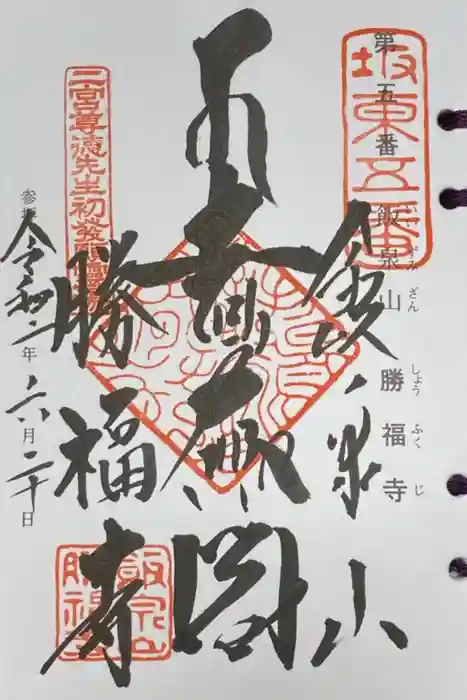 坂東五番
第五番 飯泉山 勝福寺
いいずみ ざん しょう ふく じ
飯泉山
閣
二宮尊徳先生初發願
勝福寺
飯泉山
勝福寺
参拝 令和二年六月二十日